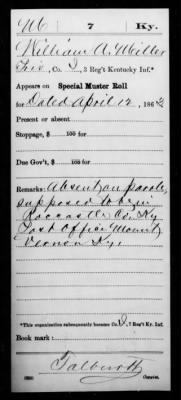 M 7 Ky.
William A. Miller
Priv., Co. I, 3 Reg't Kentucky Inf.*
Appears on Special Muster Roll
for Dated April 12, 1863
Present or absent
Stoppage, $ 100 for
Due Gov't, $ 100 for
Remarks: Absent on parole,
supposed to be in
Rockcastle Co. Ky
Post Office Mount
Vernon Ky.
*This organization subsequently became Co. I, 7 Reg't Ky. Inf.
Book mark:
Talbott
Copyist.